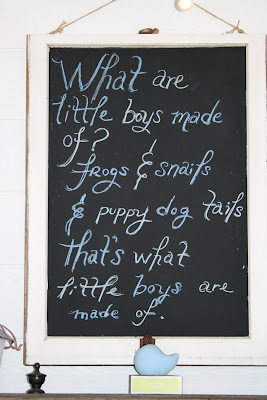 What are
little boys made
of?
frogs & snails
& puppy dog tails
that's what
little boys are
made of.